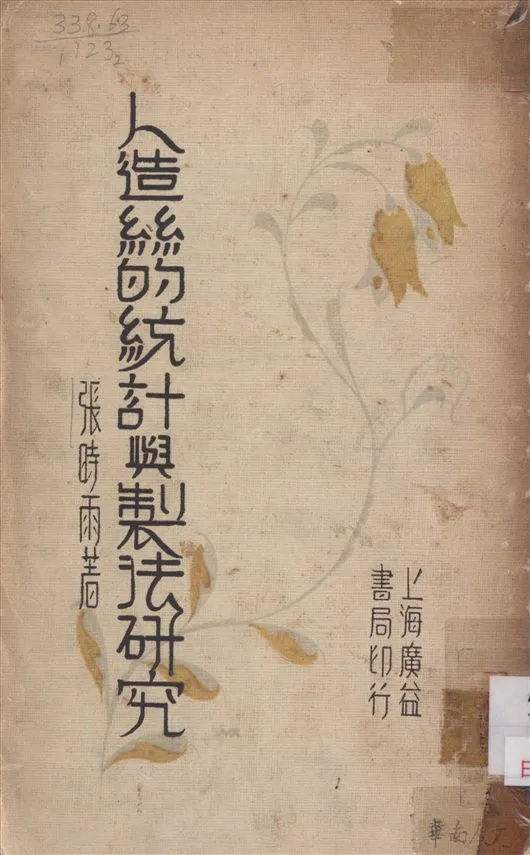 338.63
123₂
人造絲的統計與製法研究
張時雨著
上海廣益
書局印行
華南